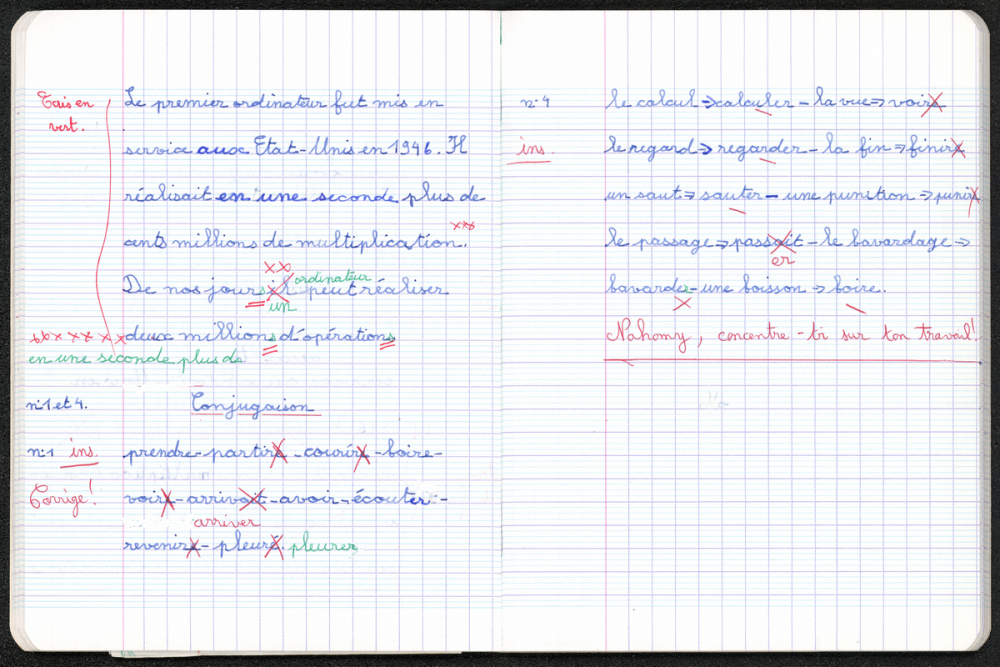 Fais en
vert.
Le premier ordinateur fut mis en
service aux Etat-Unis en 1946. Il
réalisait en une seconde plus de
cents millions de multiplication.
xxx
xx
ordinateur
De nos jours il peut réaliser
un
xxx xx x x deux millions d'opérations
en une seconde plus de
n°1 et 4. Conjugaison
n°1 ins. prendre - partire - courire - boire -
Corrige! voire - arrivait - avoir - écouter -
arriver
revenire - pleuré. pleurer
n°4 le calcul ⇒ calculer - la vue ⇒ voire
ins. le regard ⇒ regarder - la fin ⇒ finire
un saut ⇒ sauter - une punition ⇒ punire
le passage ⇒ passait - le bavardage ⇒
er
bavarder - une boisson ⇒ boire.
Nahomy, concentre-ti sur ton travail!